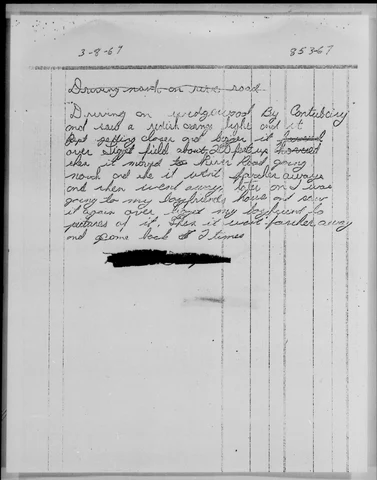 3-8-67 853-67
Driving north on river road
Driving on wedgewood By Contubciry
and saw a redish orange light and it
kept getting closer and
over field about up
then it moved to River Road going
north and as it went farther away
and then went away. later on I was
going to my boyfriends house and saw
it again over my boyfriend to
pictures of it. Then it went farther away
and come back 2 times